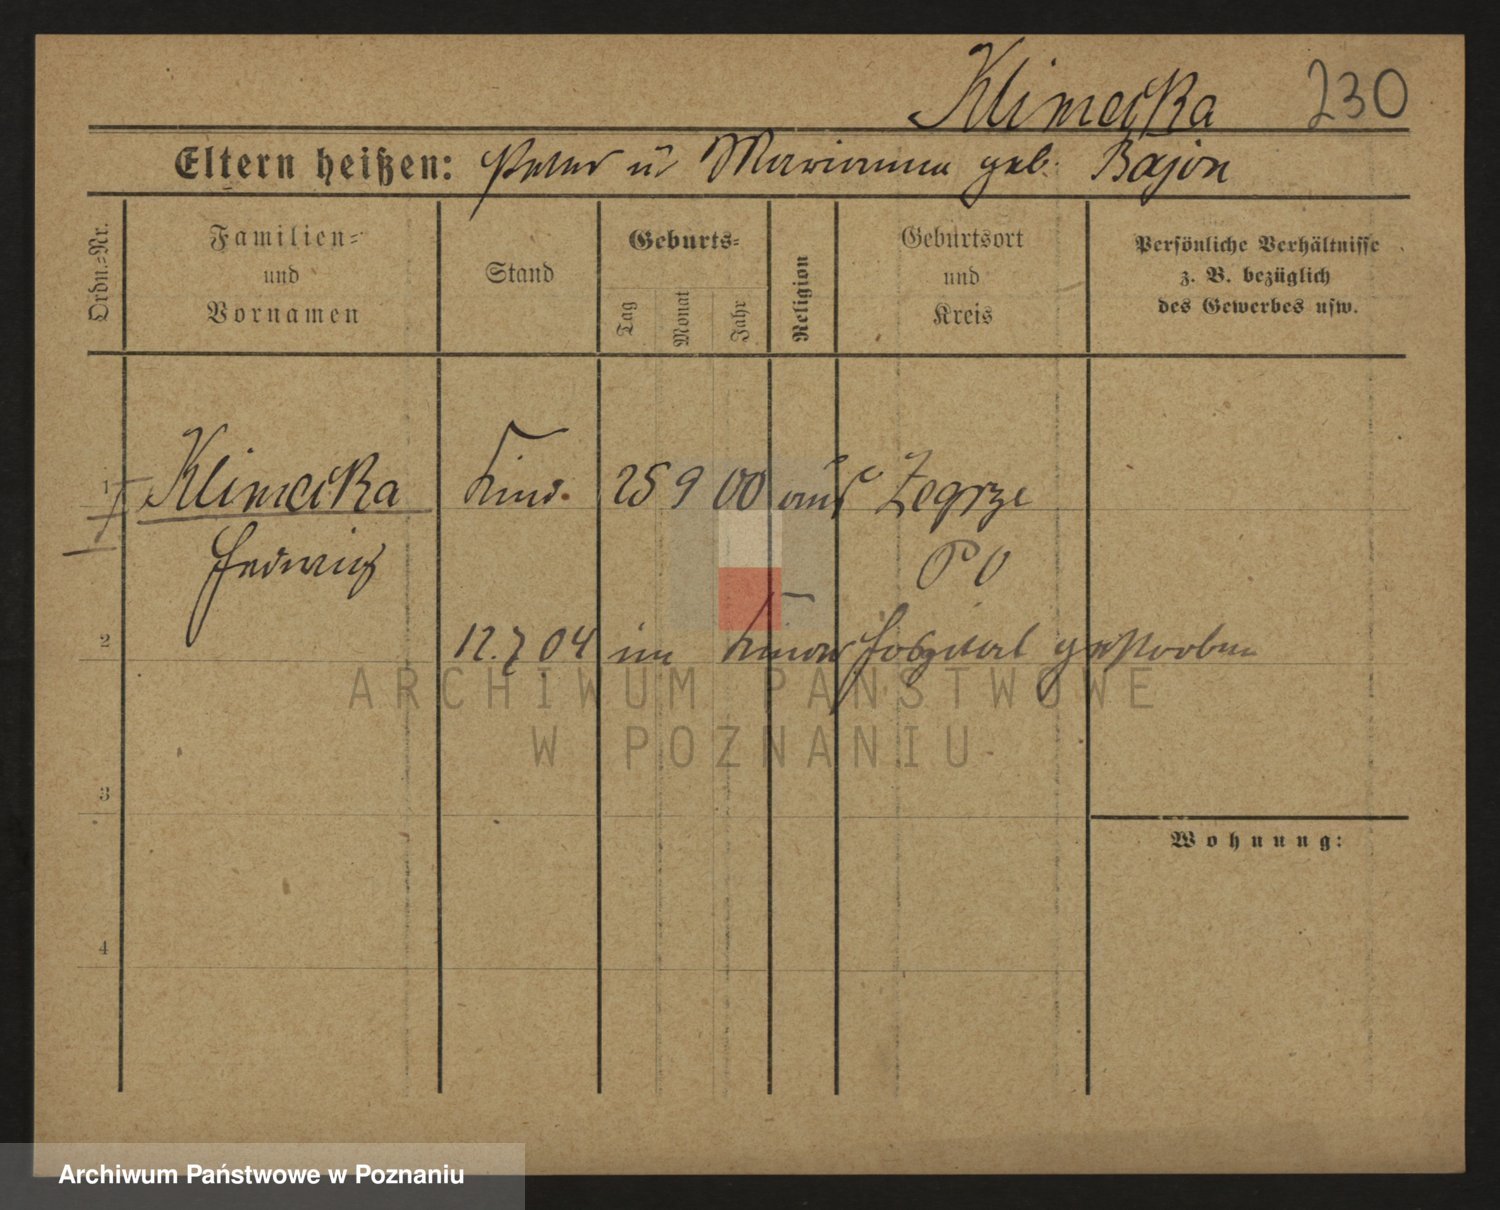 Klimecka 230
Eltern heißen: Peter u Marianna geb. Bajon
Ordn.=Nr.
Familien=
und
Vornamen
Stand
Geburts=
Tag
Monat
Jahr
Religion
Geburtsort
und
Kreis
Persönliche Verhältnisse
z. B. bezüglich
des Gewerbes usw.
1 Klimecka Kind. 25 9 00 aus Zegrze
Hedwig P O
2 12.7 04 im Kinder Hospital gestorben
ARCHIWUM PAŃSTWOWE
W POZNANIU
3
Wohnung:
4
Archiwum Państwowe w Poznaniu